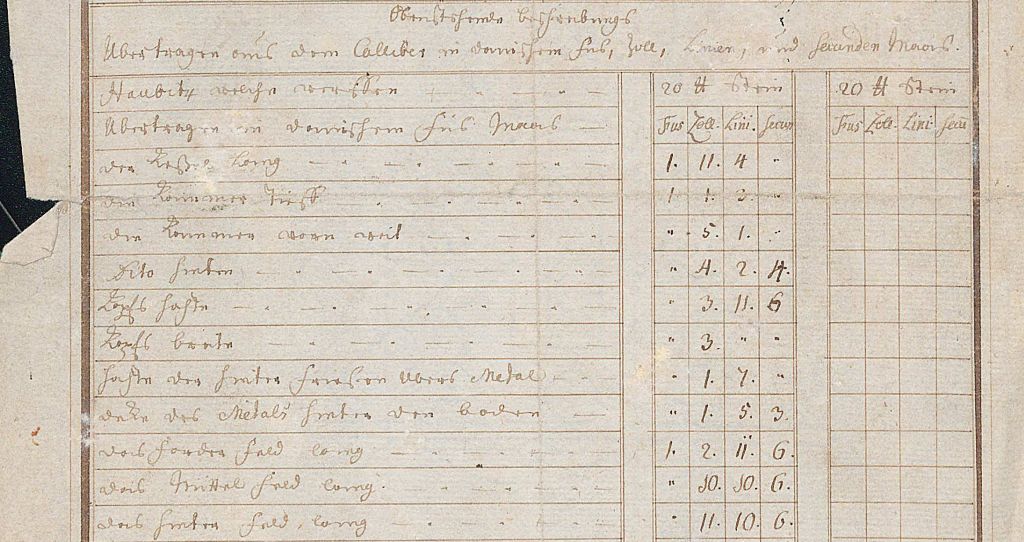 Obenstehende beschreibungs
Ubertragen aus dem Calliber in danischem Fus, Zoll, Linien, und secunden Maas.
Haubitz welche werffen 20 ℔ Stein 20 ℔ Stein
Ubertragen in danischem füs Maas Fus Zoll. Lini. Secun Fus Zoll. Lini. Secu
der Keßel lang 1. 11. 4 "
die Kammer tieff 1 1. 3. "
die Kammer vorn weit " 5. 1. "
Dito hinten " 4. 2. 4.
Kopfs hohe " 3. 11. 6
Kopfs breite " 3. " "
hohe der hinter friesen übers Metal " 1. 7. "
deke des Metals hinter den boden " 1. 5. 3.
das forder feld lang 1. 2. 11. 6.
das Mittel feld lang. " 10. 10. 6.
das hinter feld, lang " 11. 10. 6.